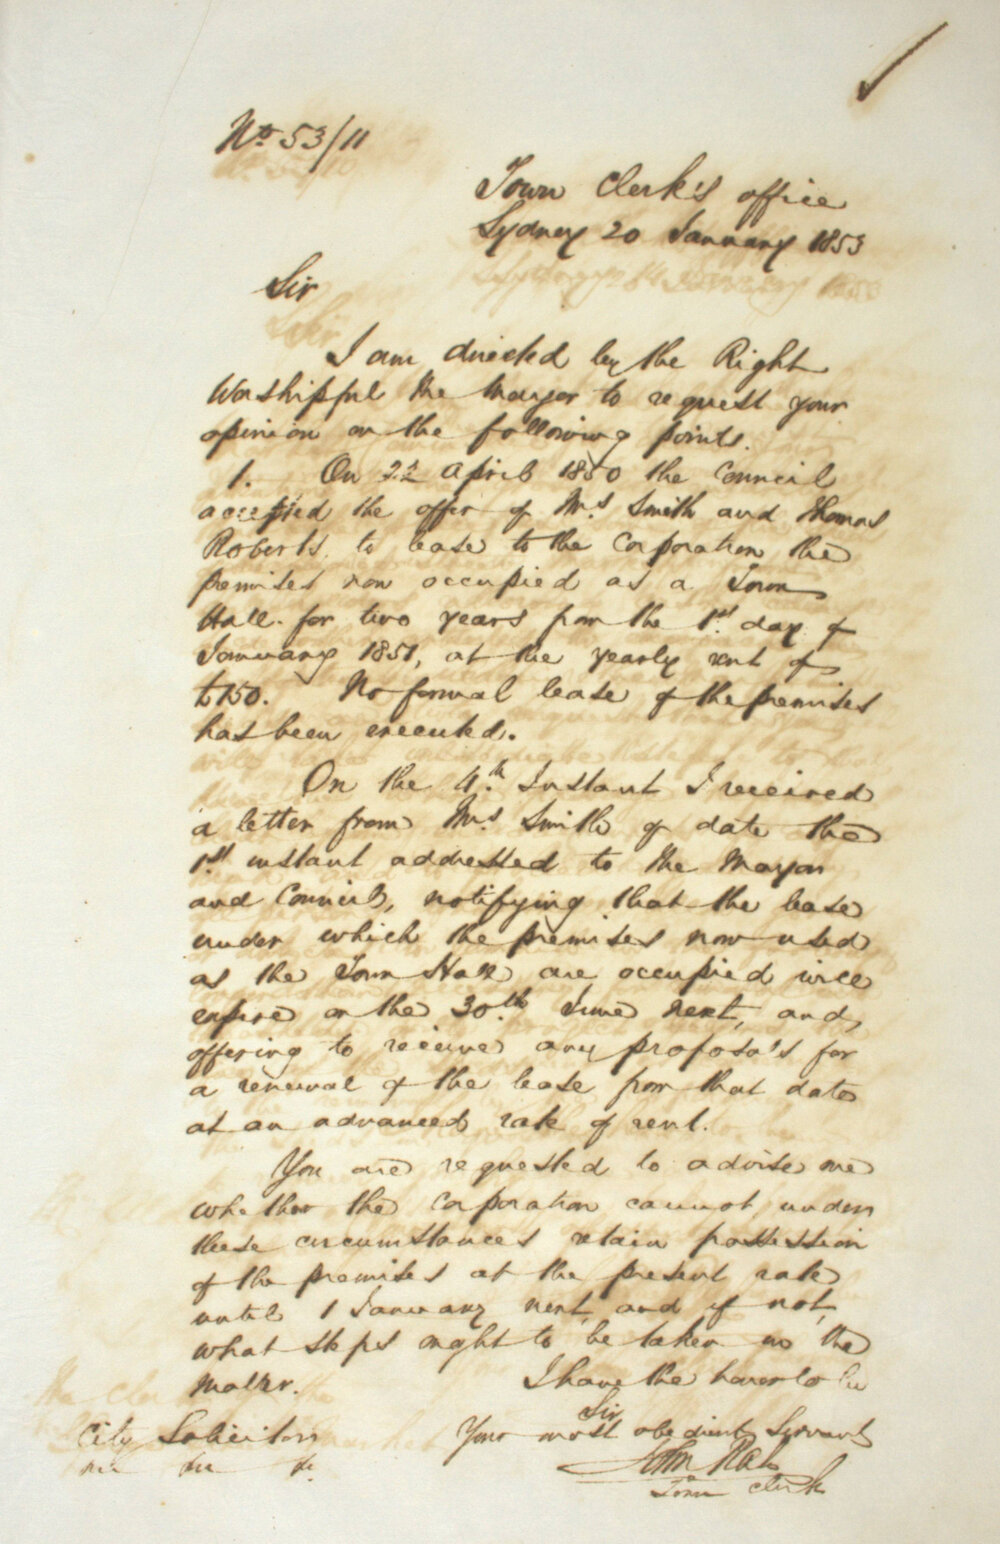 No. 53/11
Town Clerk's office
Sydney 20 January 1853
Sir
I am directed by the Right
Worshipful the Mayor to request your
opinion on the following points.
1. On 22d April 1850 the Council
accepted the offer of Mrs Smith and Thomas
Roberts to lease to the Corporation the
premises now occupied as a Town
Hall for two years from the 1st day of
January 1851, at the yearly rent of
£150. No formal lease of the premises
has been executed.
On the 4th Instant I received
a letter from Mrs Smith of date the
1st instant addressed to the Mayor
and Council, notifying that the lease
under which the premises now used
as the Town Hall are occupied will
expire on the 30th June next, and,
offering to receive any proposals for
a renewal of the lease from that date
at an advanced rate of rent.
You are requested to advise me
whether the Corporation cannot, under
these circumstances retain possession
of the premises at the present rate
until 1 January next, and if not,
what steps ought to be taken in the
matter.
I have the honor to be
Sir
City Solicitor
Your most obedient Servant
John Rae
Town Clerk